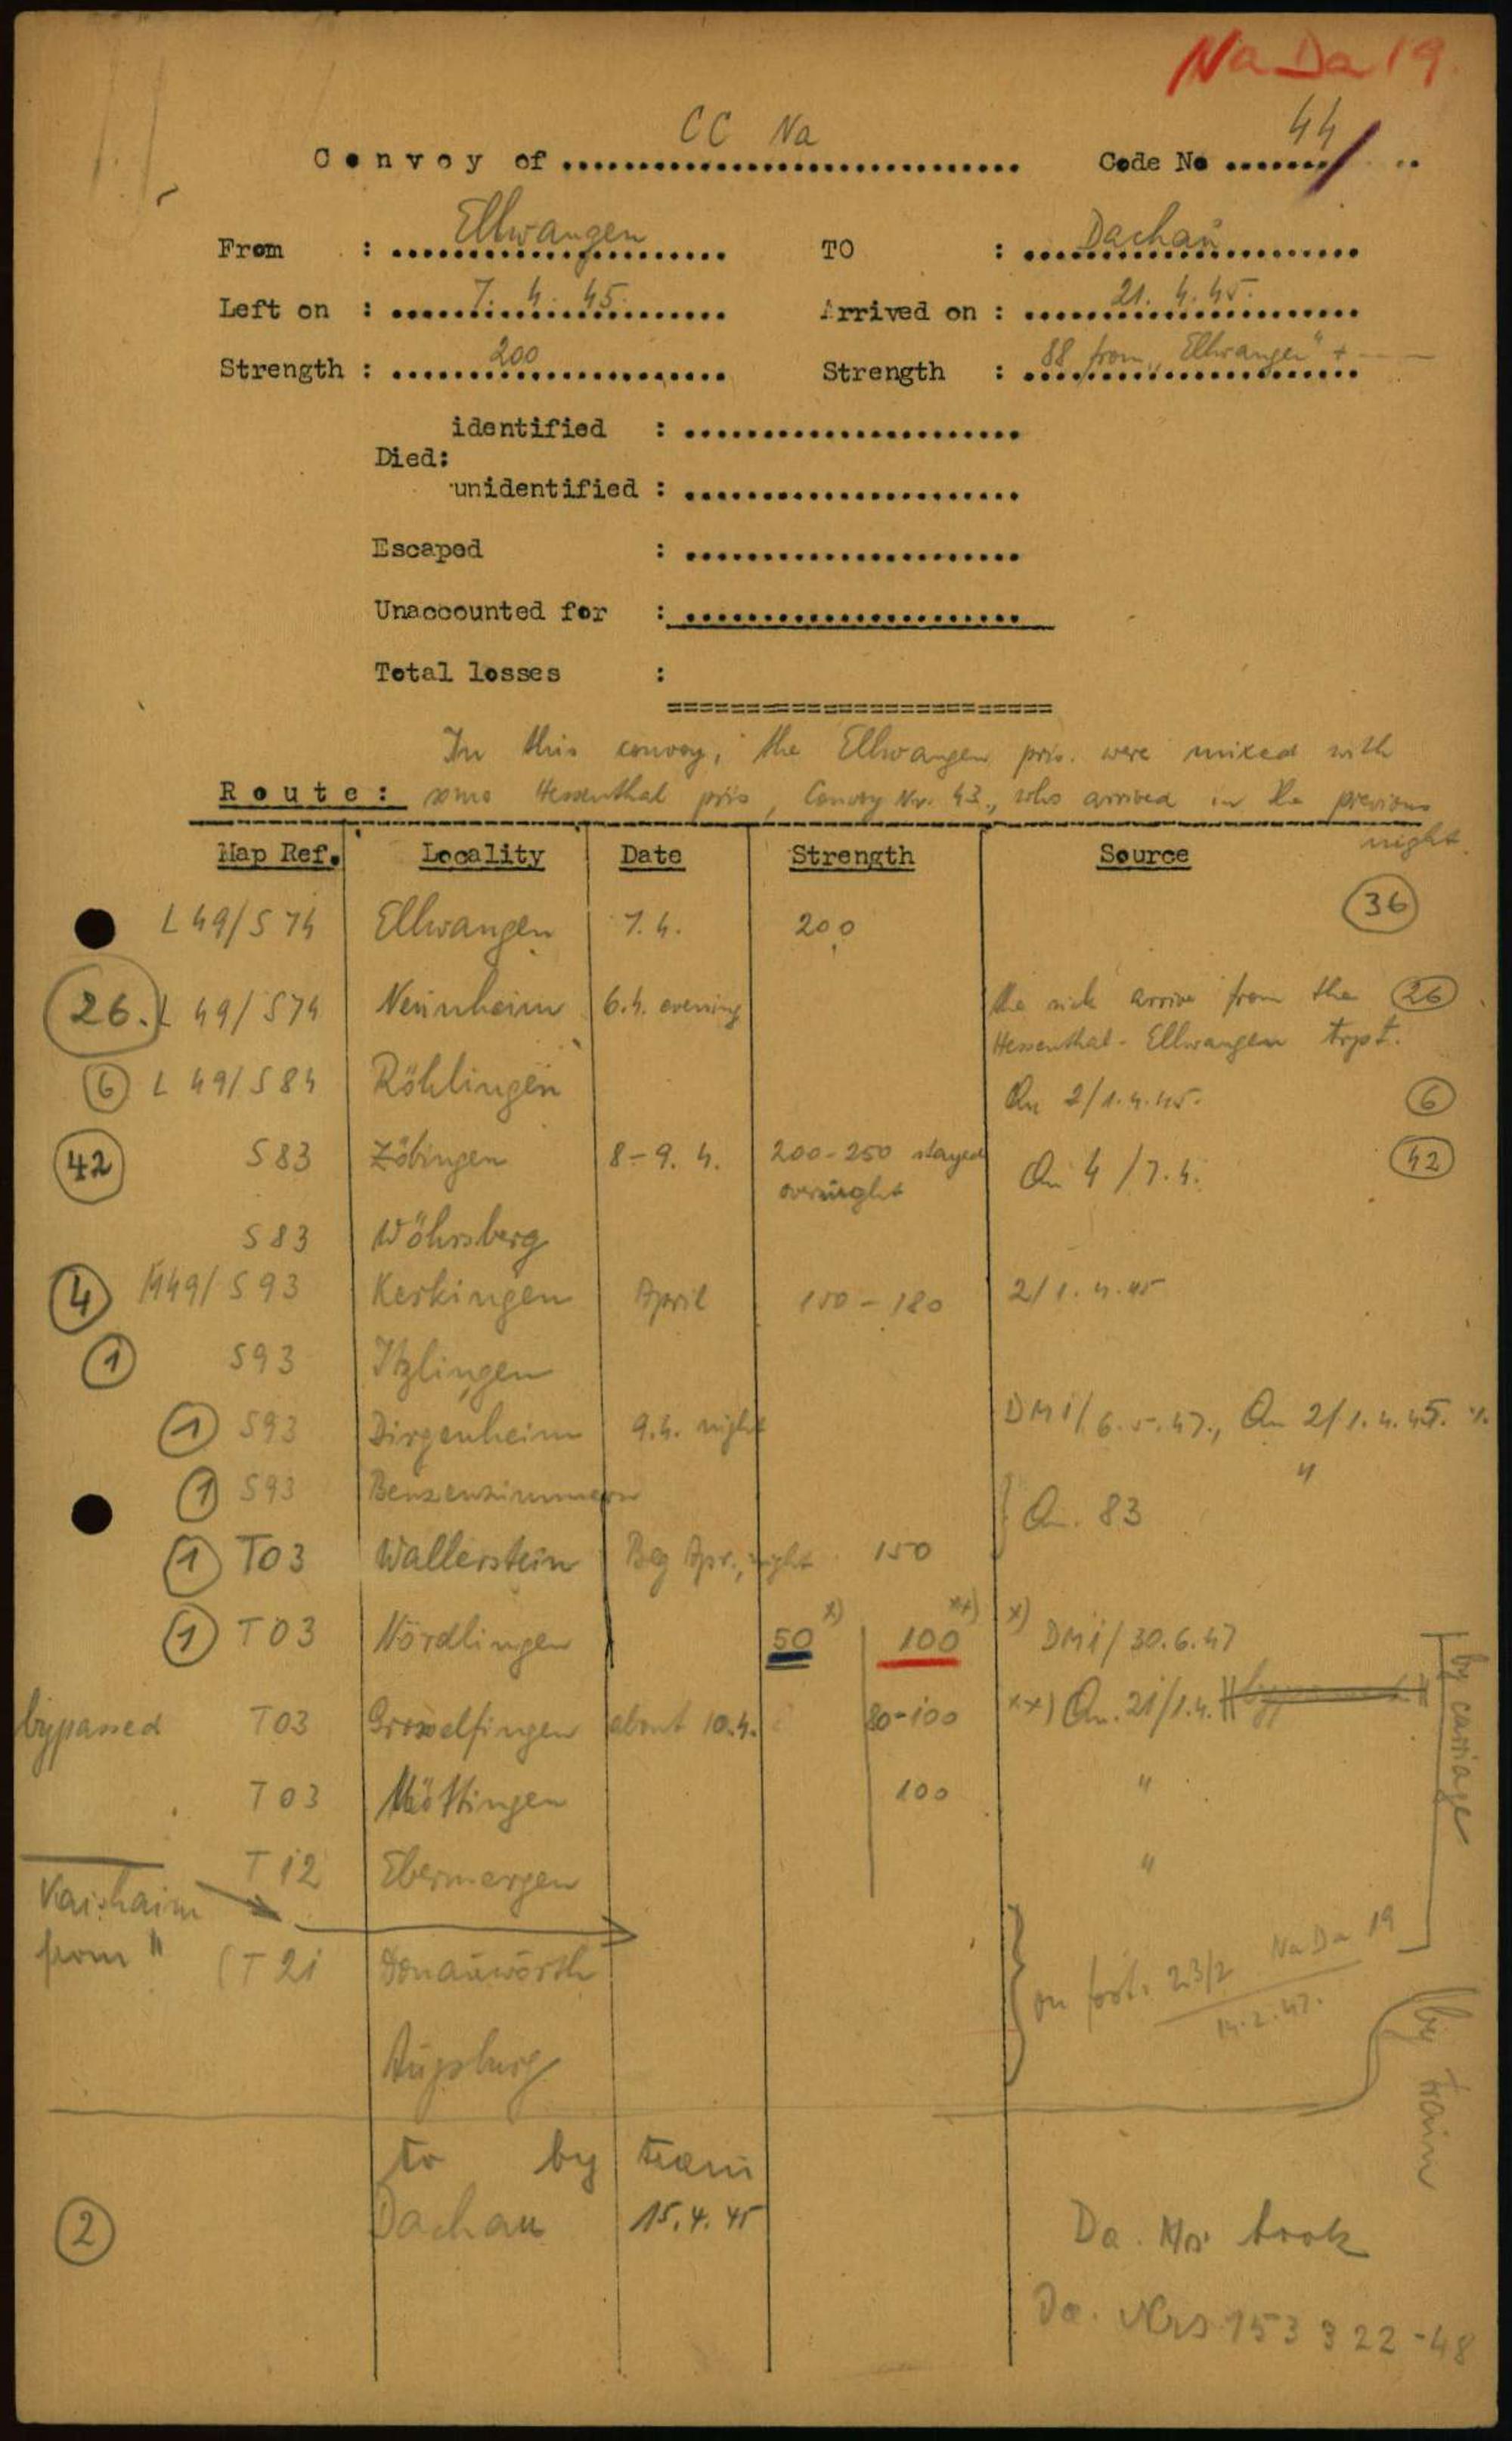 Na Da 19.
CC Na 44
Convoy of .............................. Code No ....... ..
From : Ellwangen TO : Dachau
Left on : 7. 4. 45. Arrived on : 21. 4. 45.
Strength : 200 Strength : 88 from „Ellwangen" +
identified : ......................
Died:
unidentified : ......................
Escaped : ......................
Unaccounted for : ......................
Total losses :
=========================
In this convoy, the Ellwangen pris. were mixed with
Route: some Hessenthal pris, Convoy Nr. 43., who arrived in the previous
night.
Map Ref. Locality Date Strength Source
L 49/S 74 Ellwangen 7.4. 200 36
26. L 49/S74 Neunheim 6.4. evening the sick arrive from the 26
Hessenthal - Ellwangen trpt.
6 L 49/S84 Röhlingen Qu 2/1.4.45. 6
42 S83 Zöbingen 8-9. 4. 200-250 stayed Qu 4/7.4. 42
overnight
S83 Wöhrsberg
4 M49/S93 Kerkingen April 150-180 2/1.4.45
1 S93 Itzlingen
1 S93 Dirgenheim 9.4. night DMi/6.5.47., Qu 2/1.4.45.
1 S93 Benzenzimmern "
Qu. 83
1 T03 Wallerstein Beg Apr., night 150
1 T03 Nördlingen 50 x) 100 xx) x) DMi/30.6.47
bypassed T03 Grosselfingen about 10.4. 80-100 xx) Qu. 21/1.4.
by carriage
T03 Möttingen 100 "
T12 Ebermergen "
Kaisheim
from " (T21 Donauwörth
on foot. 23/2 NaDa 19
14.2.47.
Augsburg
by train
to by train
2 Dachau 15.4.45 Da. Nrs book
Da. Nrs 153 322-48